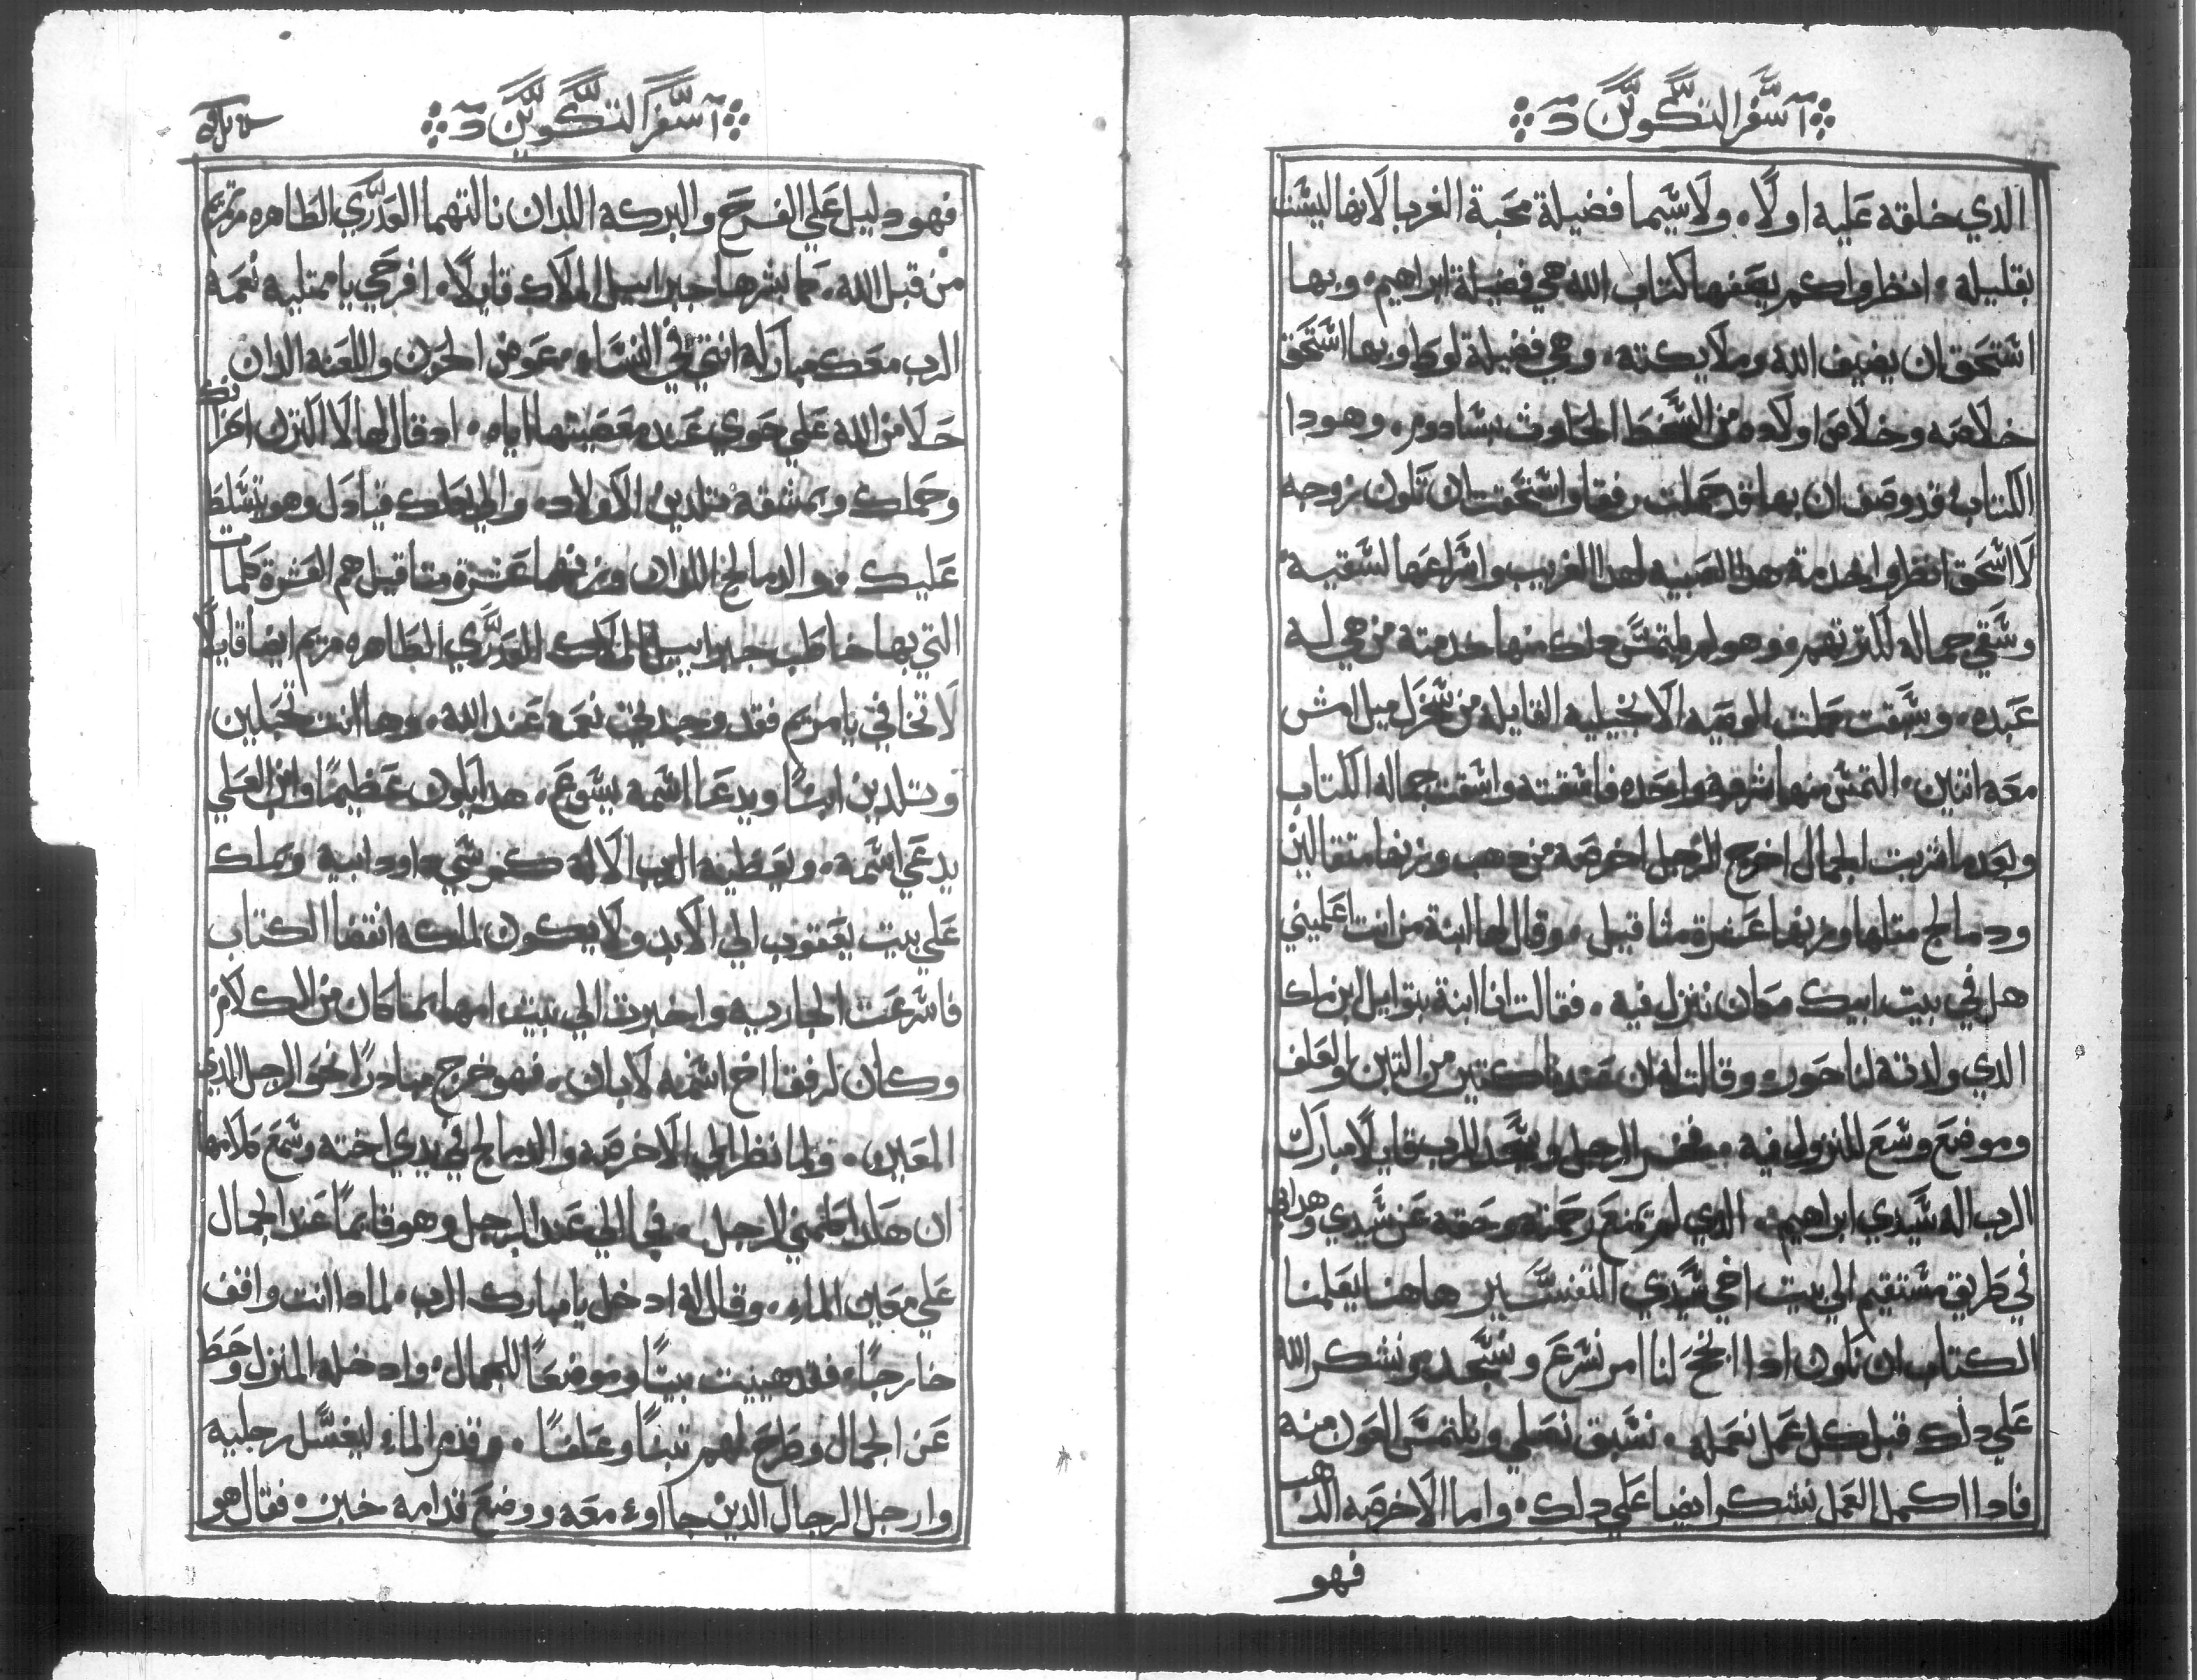 سفر التكوين
الدي خلقه عليه اولًا. ولا سيما فضيلة محبة الغربا لانها ليست
بقليلة. انظروا كم يصفها كتاب الله هي فضيلة ابراهيم. وبها
استحق ان يضيف الله وملايكته. وهي فضيلة لوط وبها استحق
خلاصه وخلاص اولاده من السخط الحادث بسادوم. وهودا
الكتاب قد وصف ان بها قد حملت رفقا واستحقت ان تكون زوجه
لاسحق انظروا خدمة هدا الصبيه لهدا الغريب واسراعها لسقيه
وسقي جماله لكثرتهم وهو لم يلتمس دلك منها خدمتة من هي له
عبده. وسبقت عملت الوصيه الانجيليه القايله من سخرك ميل امش
معه اتنين. التمس منها شربه واحده فاسقته واسقت جماله الكتاب
وبعد ما شربت الجمال اخرج الرجل اخرصة من دهب وزنها متقالين
ودمالج متلها وزنها عشرة مثاقيل. وقال لها ابنة من انت اعلميني
هل في بيت ابيك مكان ننزل فيه. فقالت انا ابنة بتوايل ابن ملك
الدي ولدته لناحور. وقالت له ان عندنا كتير من التبن والعلف
وموضع وسع للنزول فيه. فخر الرجل وسجد للرب قايلًا مبارك
الرب اله سيدي ابراهيم. الدي لم تمنع رحمته وحقه عن سيدي وهداني
في طريق مستقيم الي بيت اخي سيدي التفسير هاهنا يعلمنا
الكتاب ان نكون ادا انجح لنا امر نسرع ونسجد ونشكر الله
علي دلك قبل كل عمل نعمله. نسبق نصلي ونلتمس العون منه
فادا اكمل العمل نشكر ايضا علي دلك. واما الاخرصه الدهب
فهو
سفر التكوين
فهو دليل علي الفرح والبركه اللدان نالتهما العدري الطاهره مريم
من قبل الله. كما بشرها جبراييل الملاك قايلًا. افرحي يا ممتليه نعمه
الرب معك مباركه انتي في النساء. عوض الحزن واللعنه الدان
حلا من الله علي حوي عند معصيتها اياه. اد قال لها لا اكترن احزانك
وحملك وبمشقه تلدين الاولاد. والي بعلك قيادك وهو يتسلط
عليك. والدمالج اللدان وزنهما عشرة متاقيل هم العشرة كلمات
التي بها خاطب جبراييل الملاك العدري الطاهره مريم ايضا قايلًا
لا تخافي يا مريم فقد وجدتي نعمه عند الله. وها انت تحبلين
وتلدين ابنًا ويدعا اسمه يسوع. هدا يكون عظيمًا وابن العلي
يدعي اسمه. ويعطيه الرب الاله كرسي داود ابيه ويملك
علي بيت يعقوب الي الابد ولا يكون لملكه انقضا الكتاب
فاسرعت الجاريه واخبرت الي بيت امها بما كان من الكلام
وكان لرفقا اخ اسمه لابان. فهو خرج مبادرًا نحو الرجل الدي
المعين. ولما نظر الي الاخرصه والدمالج في يدي اخته وسمع كلامها
ان هكدا كلمني الرجل. فجا الي عند الرجل وهو قايمًا عند الجمال
علي معين الماء. وقال له ادخل يا مبارك الرب. لمادا انت واقف
خارجًا. فقد هييت بيتًا وموضعًا للجمال. وادخله المنزل وحط
عن الجمال وطرح لهم تبنًا وعلفًا. وقدم الماء ليغسل رجليه
وارجل الرجال الدين جاءوا معه ووضع قدامه خبز. فقال هو